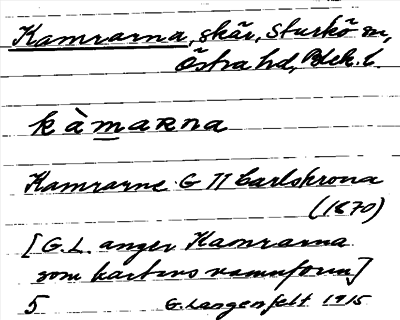 Kamrarna, skär, Sturkö sn,
Östra hd, Blek. l.
kàmarna
Kamrarne G II Carlskrona
(1870)
[G.L. anger Kamrarna
som kartens namnform]
5 G. Langenfelt 1915